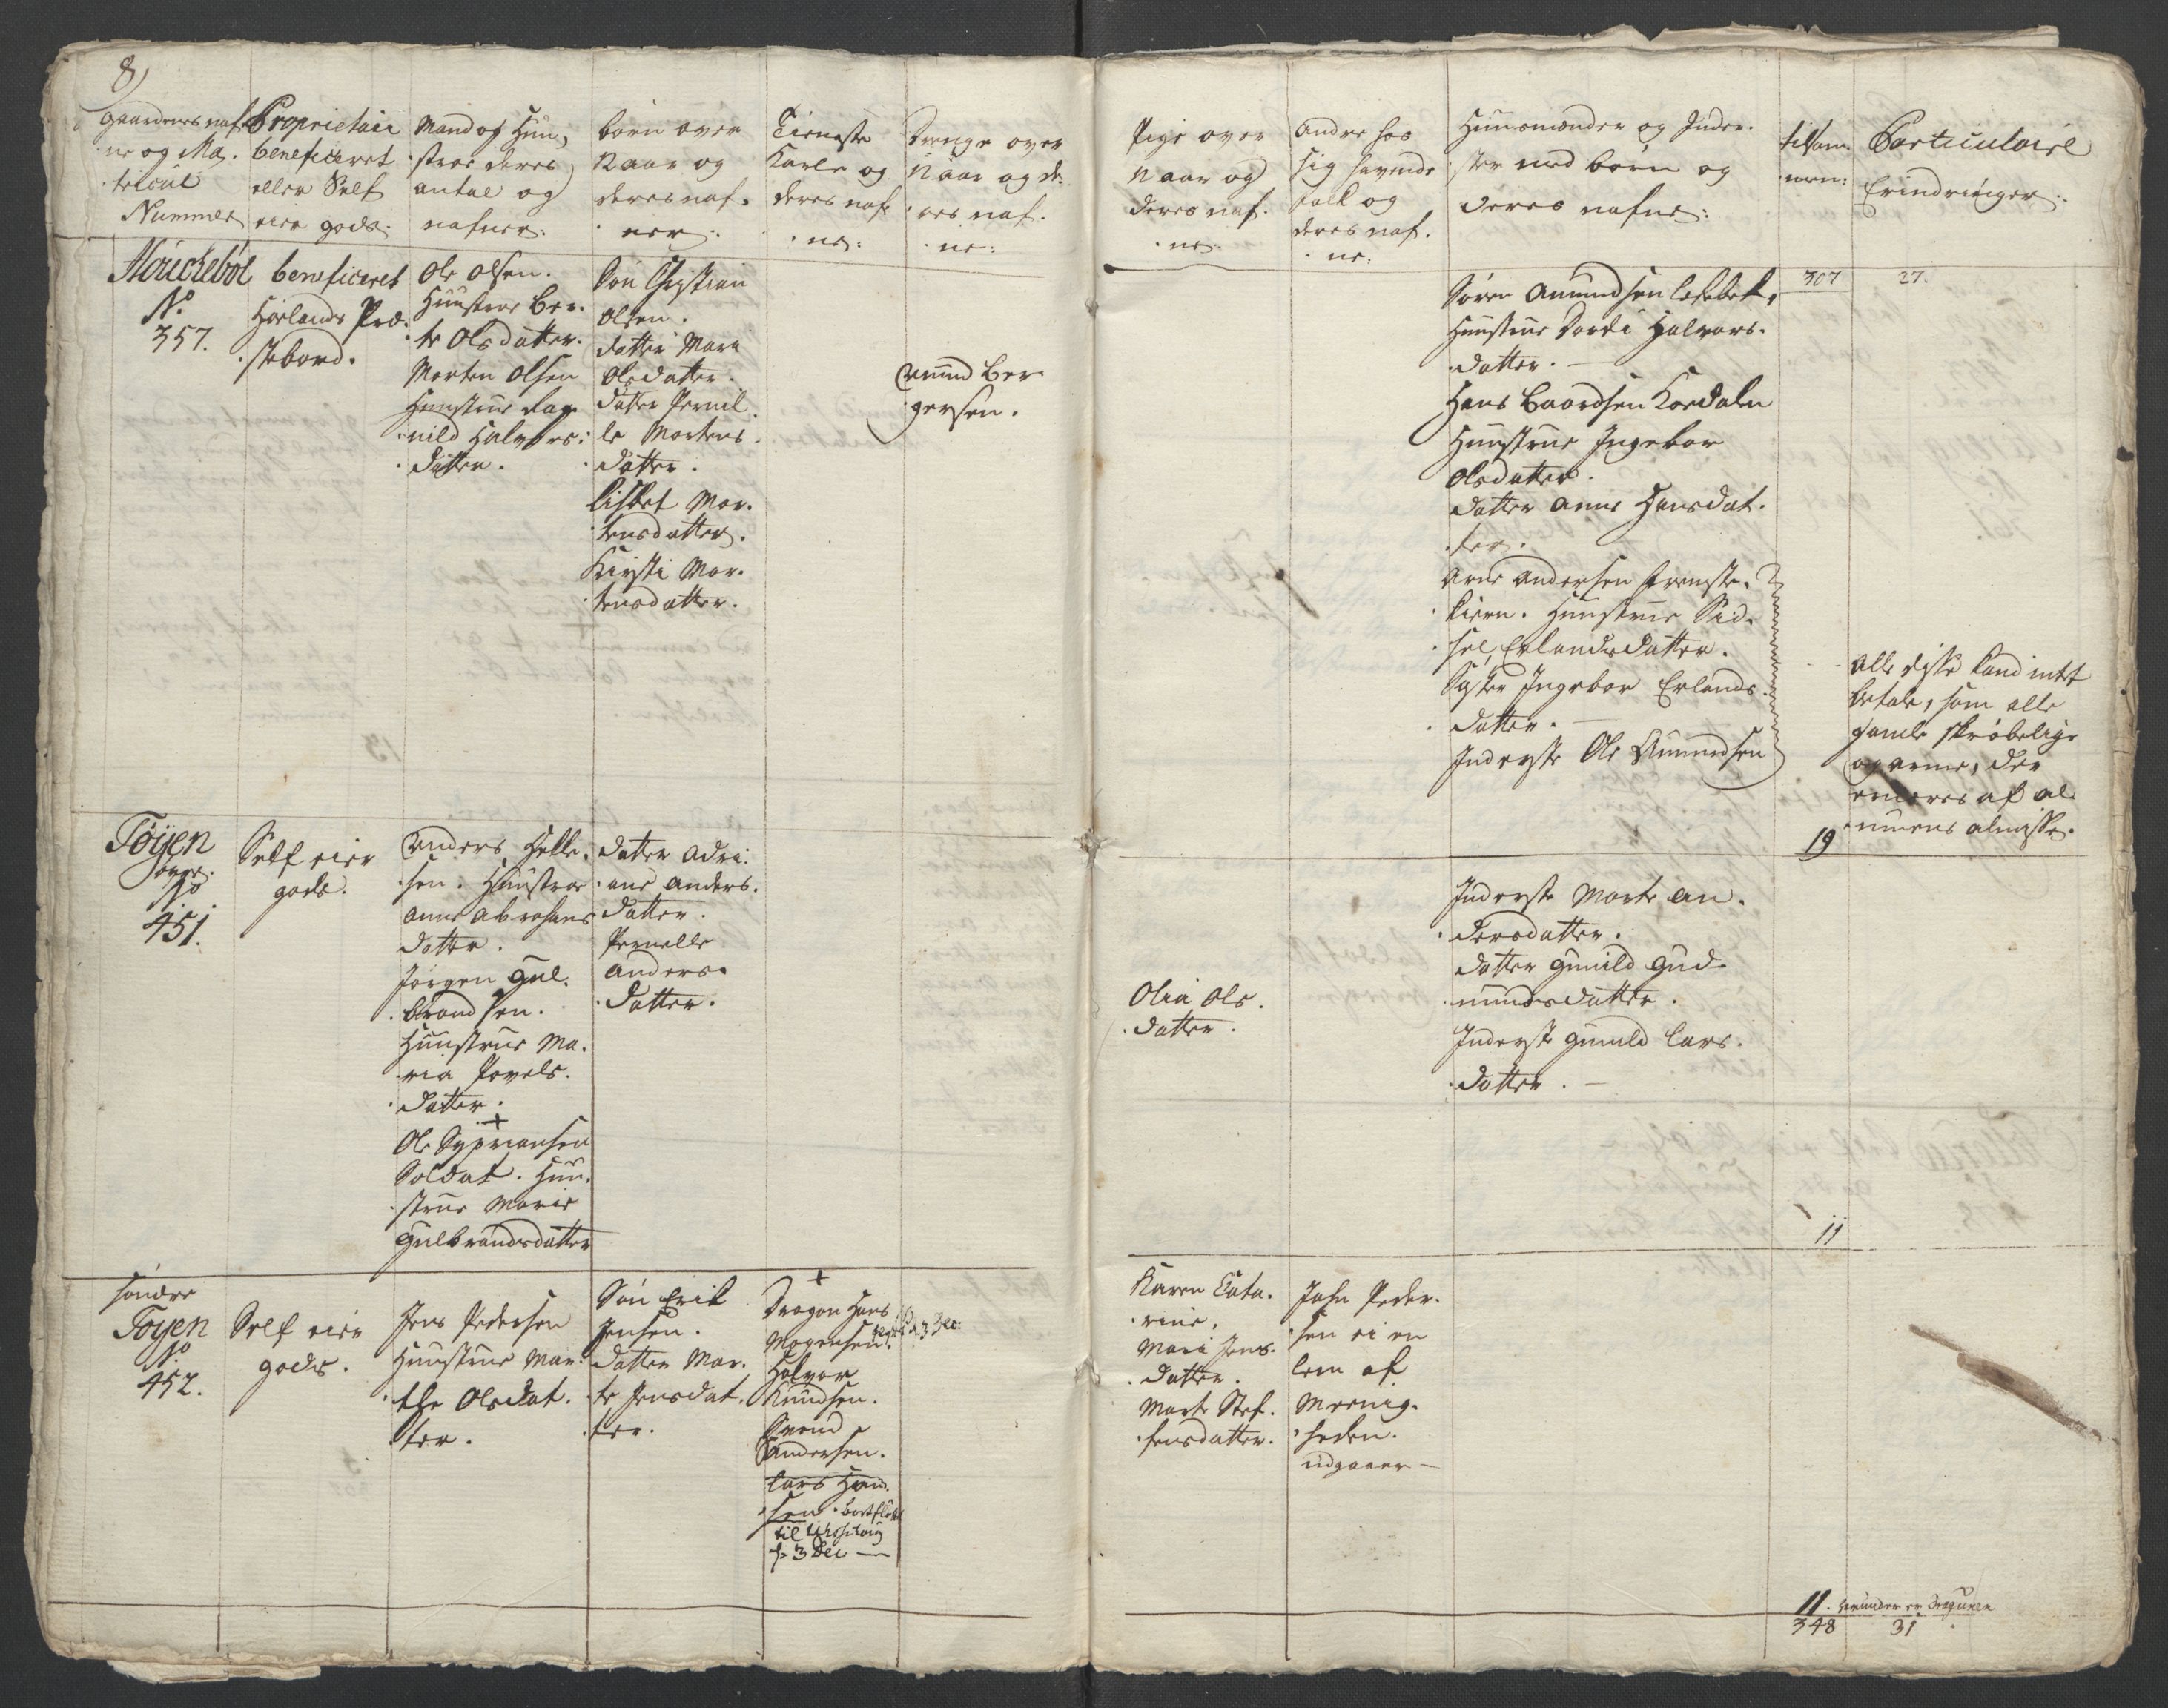 8)
Gaardenes naf-
ne og Ma-
tricul
Nummer
Proprietair
beneficeret
eller Self
eier gods.
Mand og Huu-
stroe deres
antal og
nafner.
børn over
12 aar og
deres naf-
ner.
Tieneste
Karle og
deres naf-
ne:
Drenge over
12 aar og de-
res naf-
ne:
Pige over
12 aar og
deres naf-
ne.
Andre hos
sig havende
folk og
deres naf-
ne.
Huusmænder og Inder-
ster med børn og
deres nafne:
tilsam-
men:
Particulaire
Erindringer.
Houchebøl
No
357.
beneficeret
Hørlands Præ-
stebord.
Ole Olsen.
Huustroe Ber-
te Olsdatter.
Morten Olsen
Huustrue Rag-
nild Halvors-
datter.
Søn Christian
Olsen.
datter Mari
Olsdatter.
datter Pernil-
le Mortens-
datter.
Lisbet Mor-
tensdatter.
Kirsti Mor-
tensdatter.
Amund Ber-
gersen.
Søren Amundsen
Huustrue Dordi Halvors-
datter.
Hans Baardsen Kordalen
Huustrue Ingebor
Olsdatter.
datter Anne Hansdat-
ter.
Arne Andersen
Huustrue Sid-
sel Erlandsdatter.
Søster Ingebor Erlands-
datter.
Inderste Ole Amundsen
307
27.
Alle disse kand intet
betale, som alle
gamle skrøbelige
og arme, der
af al-
muens almisse.
19
Tøyen
No
451.
Self eier
gods.
Anders Helle-
sen. Huustroe
Anne Abrahams
datter.
Jørgen Gul-
brandsen.
Huustrue Ma-
ria Povels-
datter.
+
Ole Sypriansen
Soldat. Huu-
strue Marie
Gulbrandsdatter
datter Adri-
ane Anders-
datter.
Pernelle
Anders-
datter.
Olia Ols-
datter.
Inderste Marte An-
dersdatter.
datter Gunild Gud-
mundsdatter.
Inderste Gunild Lars-
datter.
11
søndre
Tøyen
No
452.
Self eier
gods.
Jens Pedersen
Huustrue Mar-
the Olsdat-
ter.
Søn Erik
Jensen.
datter Mar-
te Jensdat-
ter.
+
Dragon Hans
Mogensen.
3 Dec:
Halvor
Knudsen.
Svend
Andersen.
Lars Han-
sen. bortfløttet
til
d. 3 Dec.
Karen Cata-
rine.
Mari Jens-
datter.
Marte Stef-
fensdatter.
John Peder-
sen ei en
lem af
Meenig-
heden.
udgaaer
11. herunder er Dragunen
348
31